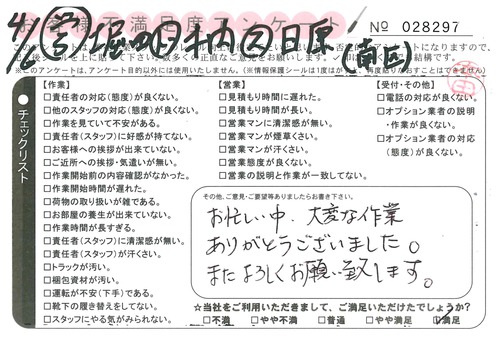 お客様不満足度アンケート
No 028297
4/6
(南区)
※このアンケートは、アンケート目的以外には使用いたしません。(※情報保護シールは1度はがすと、再度貼りなおすことはできません)
チェックリスト
【作業】
□責任者の対応(態度)が良くない。
□他のスタッフの対応(態度)が良くない。
□作業を見ていて不安がある。
□責任者(スタッフ)に好感が持てない。
□お客様への挨拶が出来ていない。
□ご近所への挨拶・気遣いが無い。
□作業開始前の内容確認がなかった。
□作業開始時間が遅れた。
□荷物の取り扱いが雑である。
□お部屋の養生が出来ていない。
□作業時間が長すぎる。
□責任者(スタッフ)に清潔感が無い。
□責任者(スタッフ)が汗くさい。
□トラックが汚い。
□梱包資材が汚い。
□運転が不安(下手)である。
□靴下の履き替えをしてない。
□スタッフにやる気がみられない。
【営業】
□見積もり時間に遅れた。
□見積もり時間が長い。
□営業マンに清潔感が無い。
□営業マンが煙草くさい。
□営業マンが汗くさい。
□営業態度が良くない。
□営業の説明と作業が一致してない。
【受付・その他】
□電話の対応が良くない。
□オプション業者の説明・作業が良くない。
□オプション業者の対応(態度)が良くない。
その他、ご意見・ご要望等ありましたらお書き下さい。
お忙しい中、大変な作業
ありがとうございました。
またよろしくお願い致します。
☆当社をご利用いただきまして、ご満足いただけたでしょうか?
□不満 □やや不満 □普通 □やや満足 □満足